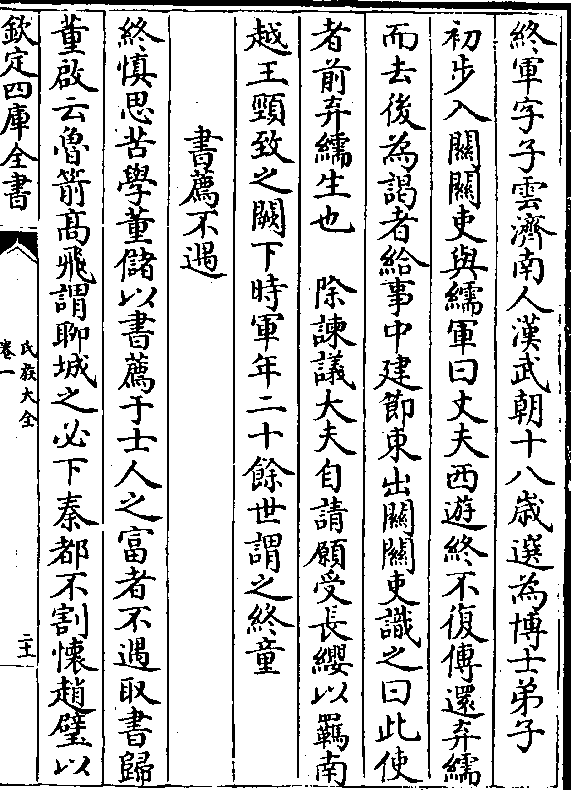 終軍字子雲濟南人漢武朝十八歳選為博士弟子
初步入關關吏與繻軍曰丈夫西遊終不復傳還弃繻
而去後為謁者給事中建節東出關關吏識之曰此使
者前弃繻生也　除諫議大夫自請願受長纓以羈南
越王頸致之闕下時軍年二十餘世謂之終童
書薦不遇
終慎思苦學董儲以書薦于士人之富者不遇取書歸
董啟云魯箭髙飛謂聊城之必下秦都不割懷趙璧以
欽定四庫全書
氏族大全
卷一
二十